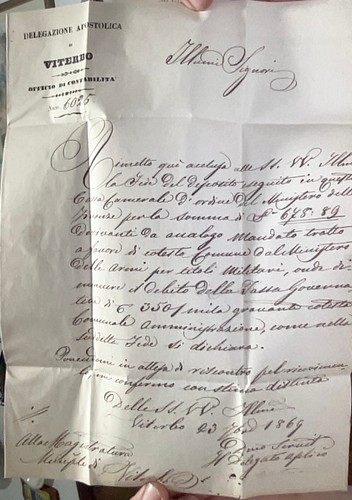 DELEGAZIONE APOSTOLICA
DI
VITERBO
OFFICIO DI CONTABILITA'
Num. 6025
Illmi Signori
Rimetto qui acclusa alle SS. VV. Illme
la Fede del deposito seguito in questa
Cassa Camerale d'ordine del Ministero delle
Finanze per la somma di 675:89
derivanti da analogo Mandato tratto
a favore di cotesto Comune dal Ministero
delle Armi per titoli Militari, onde di-
minuire il debito della Tassa Governa
tiva di 350/mila gravante cotesta
Comunale Amministrazione, come nella
suddetta Fede si dichiara.
in attesa di riscontro pel ricevimen-
to, mi confermo con stima distinta
Delle SS. VV. Illme
Viterbo 23 1869
Alla Magistratura
Municiple di
Il Delegato aplico